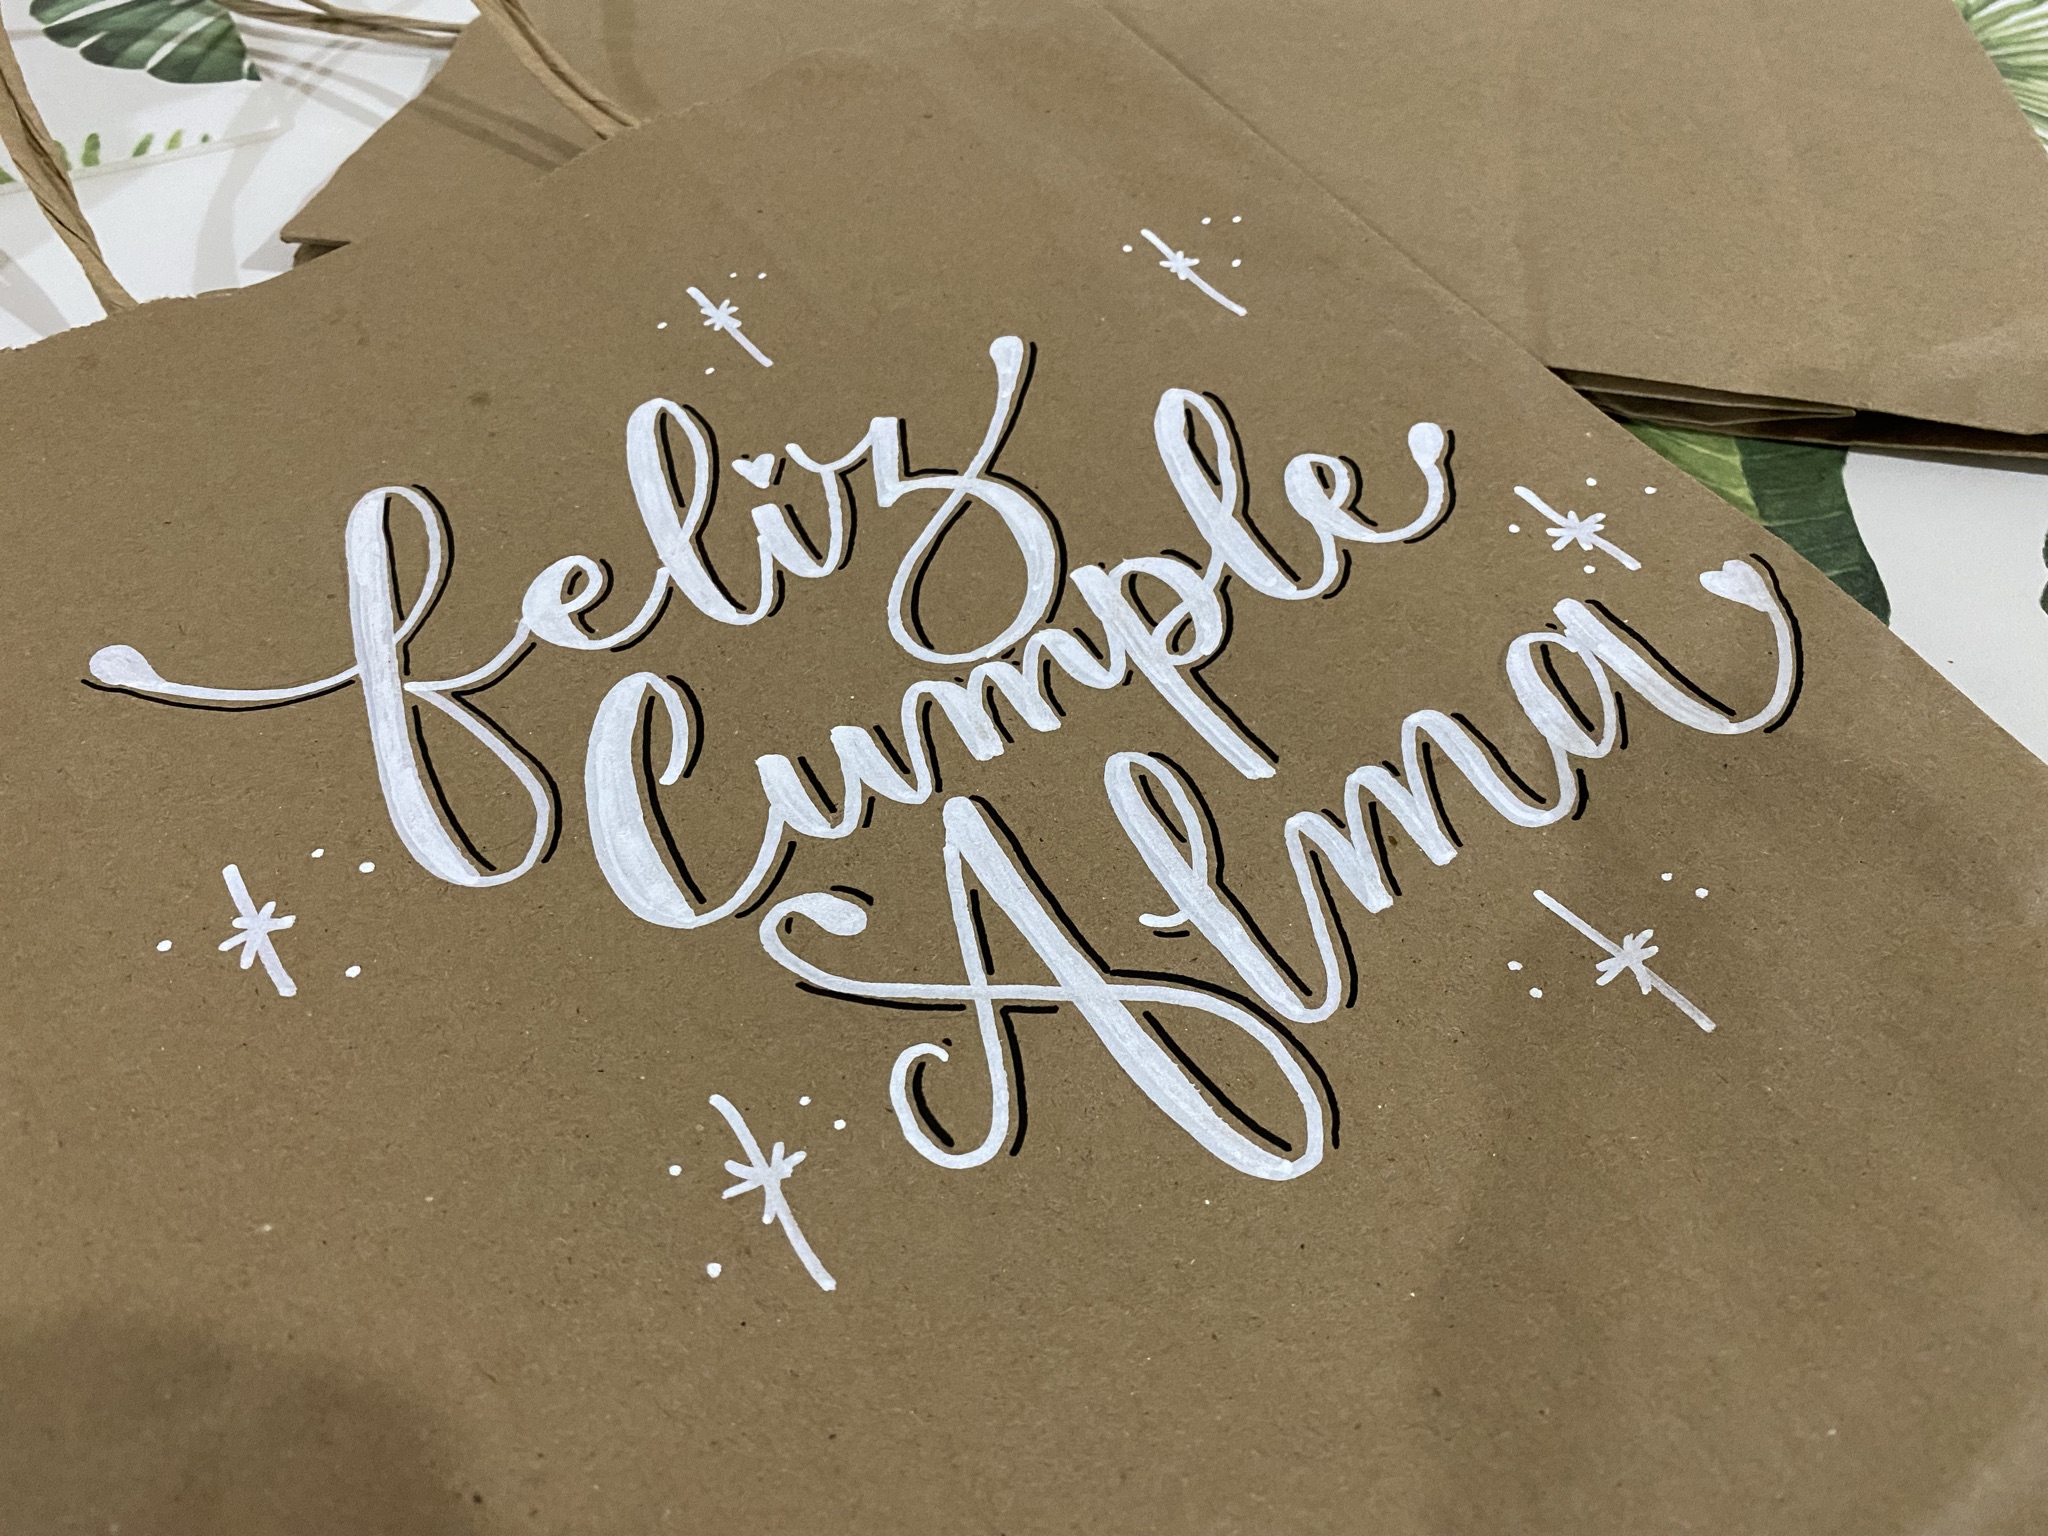 feliz
Cumple
Alma